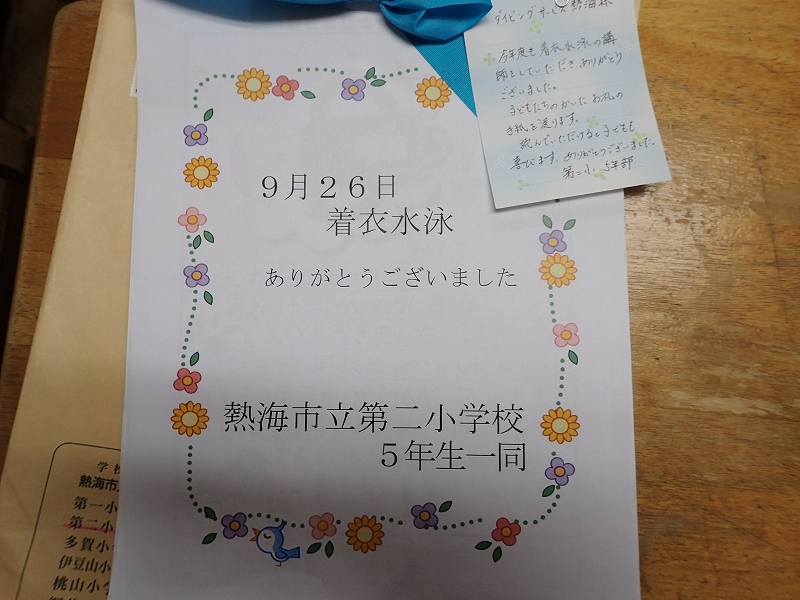 ダイビングサービス熱海様
今年度も着衣水泳の講
師をしていただき、ありがとう
ございました。
子どもたちのかいたお礼の
手紙を送ります。
読んでいただけると子どもも
喜びます。ありがとうございました。
第二小 5年部
9月26日
着衣水泳
ありがとうございました
熱海市立第二小学校
5年生一同
学校
熱海市
第一小
第二小
多賀小
伊豆山小
桃山小学